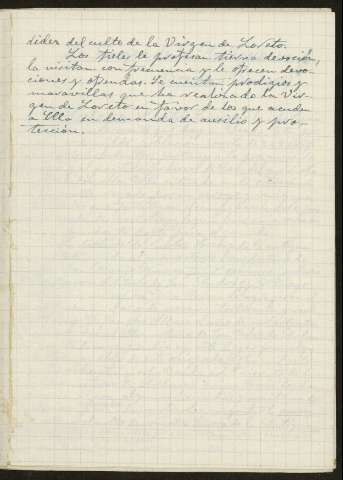 dider del culto de la Virgen de Loreto.
Los fieles le profesan tierna devoción,
la visitan con frecuencia y le ofrecen devo-
ciones y ofrendas. Se cuentan prodigios y
maravillas que ha realizado la Vir-
gen de Loreto en favor de los que acuden
a Ella en demanda de auxilio y pro-
tección.